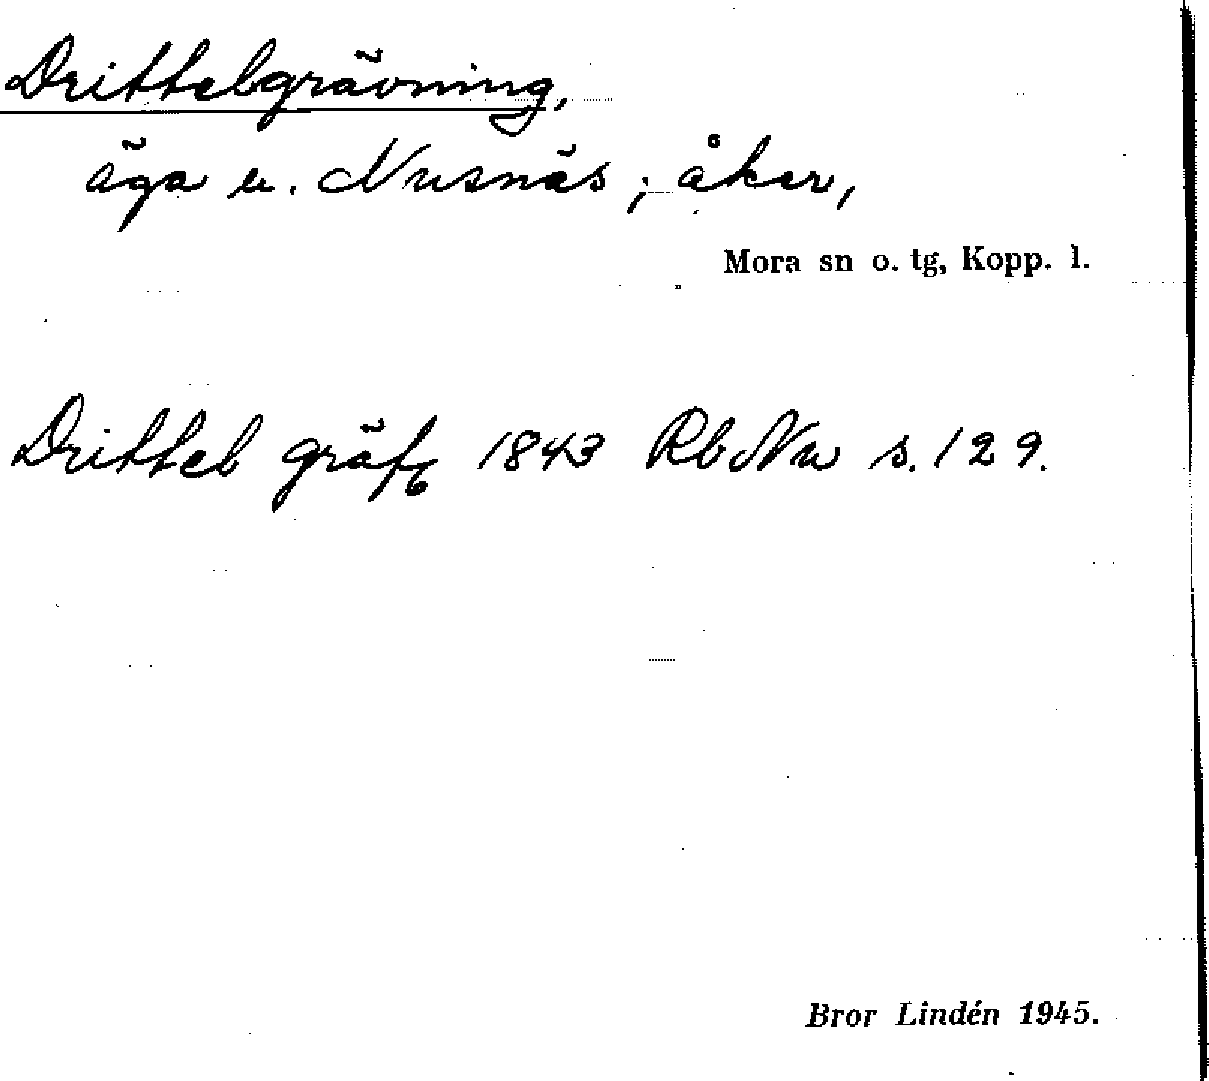 Drittelgrävning,
äga u. Nusnäs; åker,
Mora sn o. tg, Kopp. l.
Drittel gräfg 1843 RbNu s. 129.
Bror Lindén 1945.